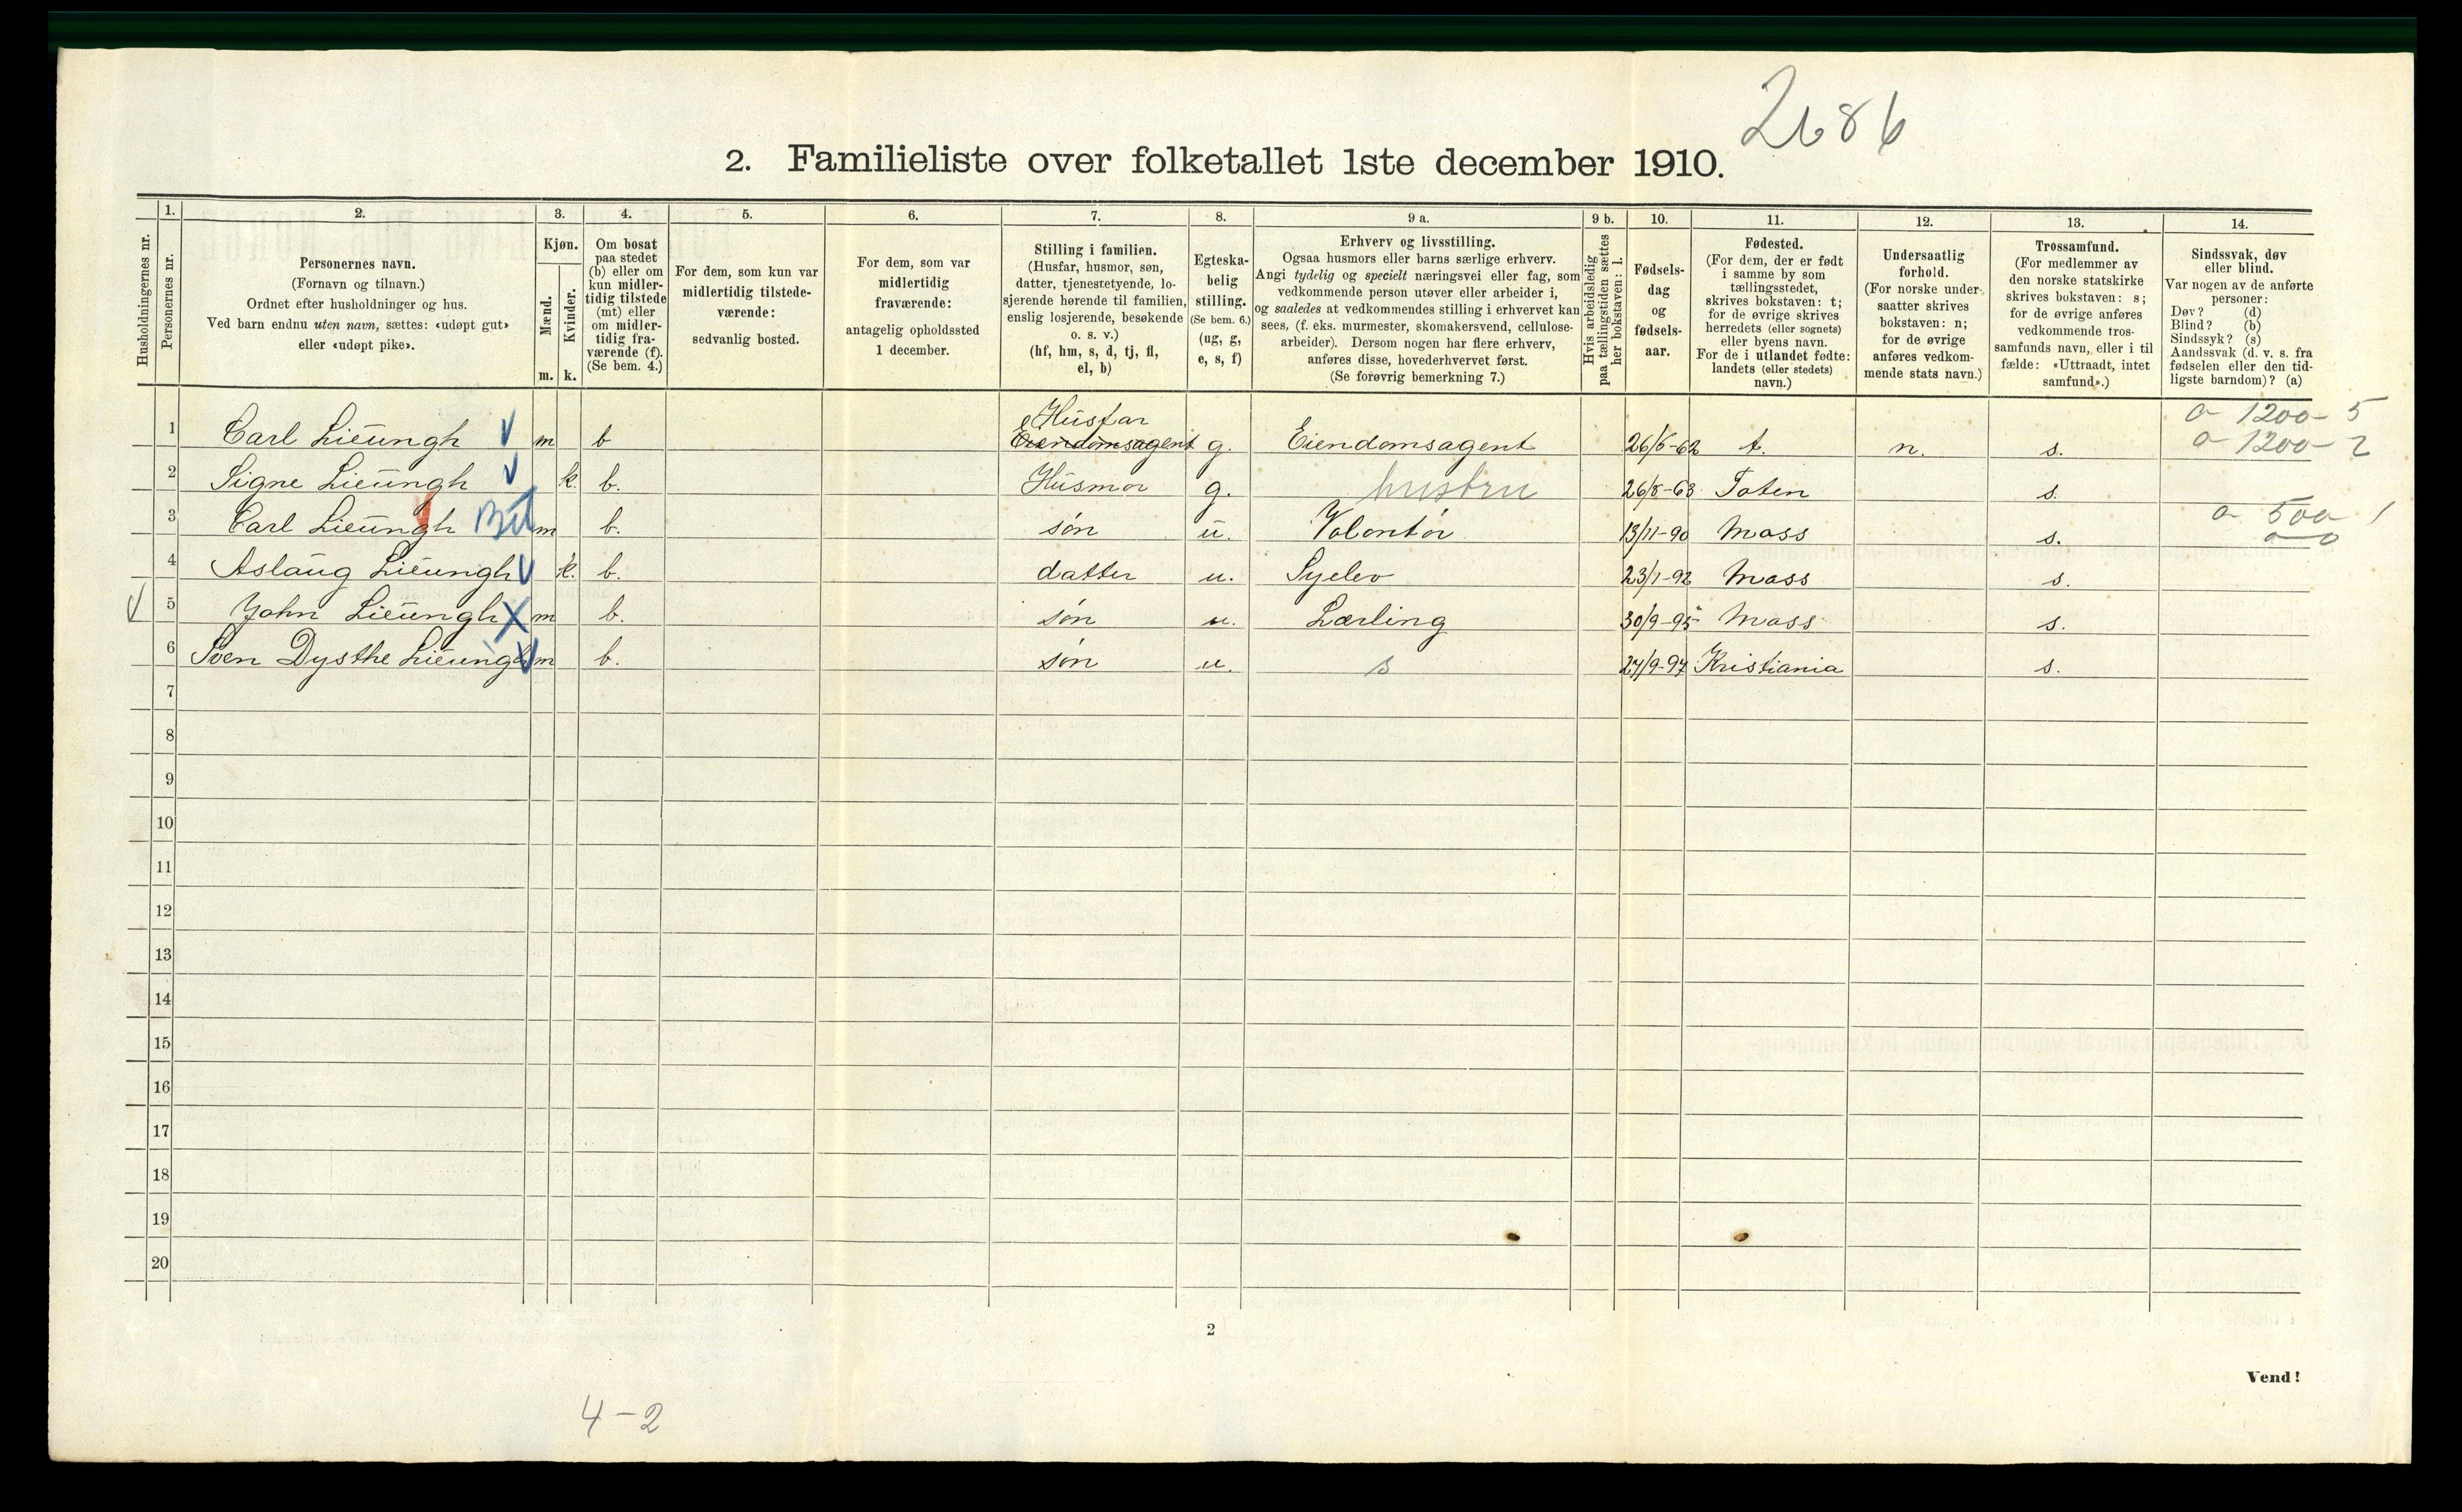 2686
2. Familieliste over folketallet 1ste december 1910.
Husholdningernes nr.
1. Personernes nr.
2.
Personernes navn.
(Fornavn og tilnavn.)
Ordnet efter husholdninger og hus.
Ved barn endnu uten navn, sættes: «udøpt gut»
eller «udøpt pike».
3.
Kjøn.
Mænd. Kvinder.
m. k.
4.
Om bosat
paa stedet
(b) eller om
kun midler-
tidig tilstede
(mt) eller
om midler-
tidig fra-
værende (f).
(Se bem. 4.)
5.
For dem, som kun var
midlertidig tilstede-
værende:
sedvanlig bosted.
6.
For dem, som var
midlertidig
fraværende:
antagelig opholdssted
1 december.
7.
Stilling i familien.
(Husfar, husmor, søn,
datter, tjenestetyende, lo-
sjerende hørende til familien,
enslig losjerende, besøkende
o. s. v.)
(hf, hm, s, d, tj, fl,
el, b)
8.
Egteska-
belig
stilling.
(Se bem. 6.)
(ug, g,
e, s, f)
9 a.
Erhverv og livsstilling.
Ogsaa husmors eller barns særlige erhverv.
Angi tydelig og specielt næringsvei eller fag, som
vedkommende person utøver eller arbeider i,
og saaledes at vedkommendes stilling i erhvervet kan
sees, (f. eks. murmester, skomakersvend, cellulose-
arbeider). Dersom nogen har flere erhverv,
anføres disse, hovederhvervet først.
(Se forøvrig bemerkning 7.)
9 b.
Hvis arbeidsledig
paa tællingstiden sættes
her bokstaven: l.
10.
Fødsels-
dag
og
fødsels-
aar.
11.
Fødested.
(For dem, der er født
i samme by som
tællingsstedet,
skrives bokstaven: t;
for de øvrige skrives
herredets (eller sognets)
eller byens navn.
For de i utlandet fødte:
landets (eller stedets)
navn.)
12.
Undersaatlig
forhold.
(For norske under-
saatter skrives
bokstaven: n;
for de øvrige
anføres vedkom-
mende stats navn.)
13.
Trossamfund.
(For medlemmer av
den norske statskirke
skrives bokstaven: s;
for de øvrige anføres
vedkommende tros-
samfunds navn, eller i til
fælde: «Uttraadt, intet
samfund».)
14.
Sindssvak, døv
eller blind.
Var nogen av de anførte
personer:
Døv? (d)
Blind? (b)
Sindssyk? (s)
Aandssvak (d. v. s. fra
fødselen eller den tid-
ligste barndom)? (a)
a 1200- 5
1 Carl Lieungh m b Husfar Eiendomsagent g. Eiendomsagent 26/6-62 t. n. s. a 1200- 2
2 Signe Lieungh k. b. Husmor g. hustru 26/8-63 Toten s.
a 500 1
3 Carl Lieungh m b. søn u. Volontør 13/11-90 Moss s.
4 Aslaug Lieungh k. b. datter u. Syelev 23/1-92 Moss s.
5 John Lieungh m b. søn u. Lærling 30/9-95 Moss s.
6 Sven Dysthe Lieungh m b. søn u. s 27/9-97 Kristiania s.
7
8
9
10
11
12
13
14
15
16
17
18
19
20
2
Vend!
4-2